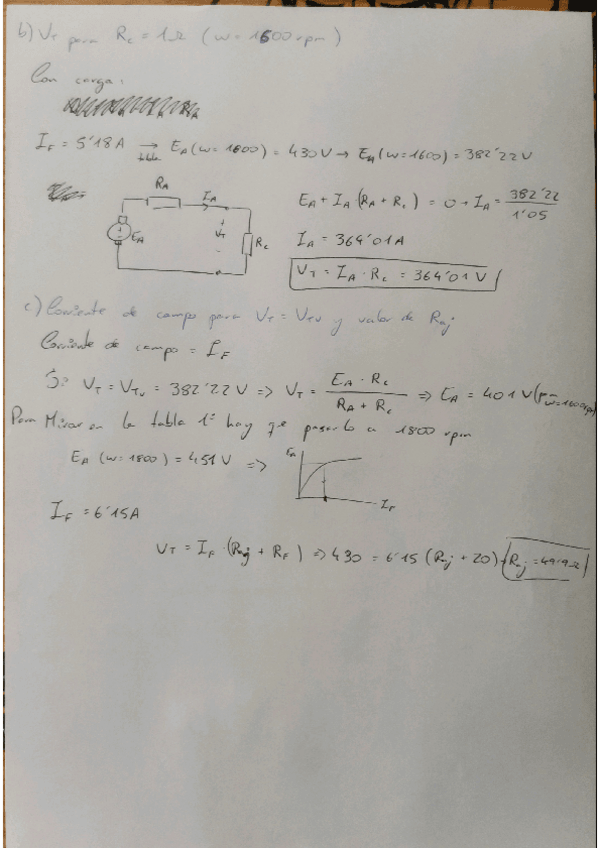 b) V_T para R_c = 1Ω (w = 1600 rpm)
Con carga:
I_F = 5'18A → tabla E_A (w = 1800) = 430V → E_A (w = 1600) = 382'22V
R_A I_A
E_A + V_T - R_c
E_A + I_A · (R_A + R_c) = 0 → I_A = 382'22 / 1'05
I_A = 364'01A
V_T = I_A · R_c = 364'01 V
c) Corriente de campo para V_T = V_TV y valor de Raj
Corriente de campo = I_F
Si V_T = V_TV = 382'22V => V_T = E_A · R_c / R_A + R_c => E_A = 401V (para w=1600rpm)
Para Mirar en la tabla 1º hay que pasarlo a 1800 rpm
E_A (w = 1800) = 451V =>
E_A I_F
I_F = 6'15A
V_T = I_F · (Raj + R_F) => 430 = 6'15 (Raj + 20) → Raj = 49'9Ω